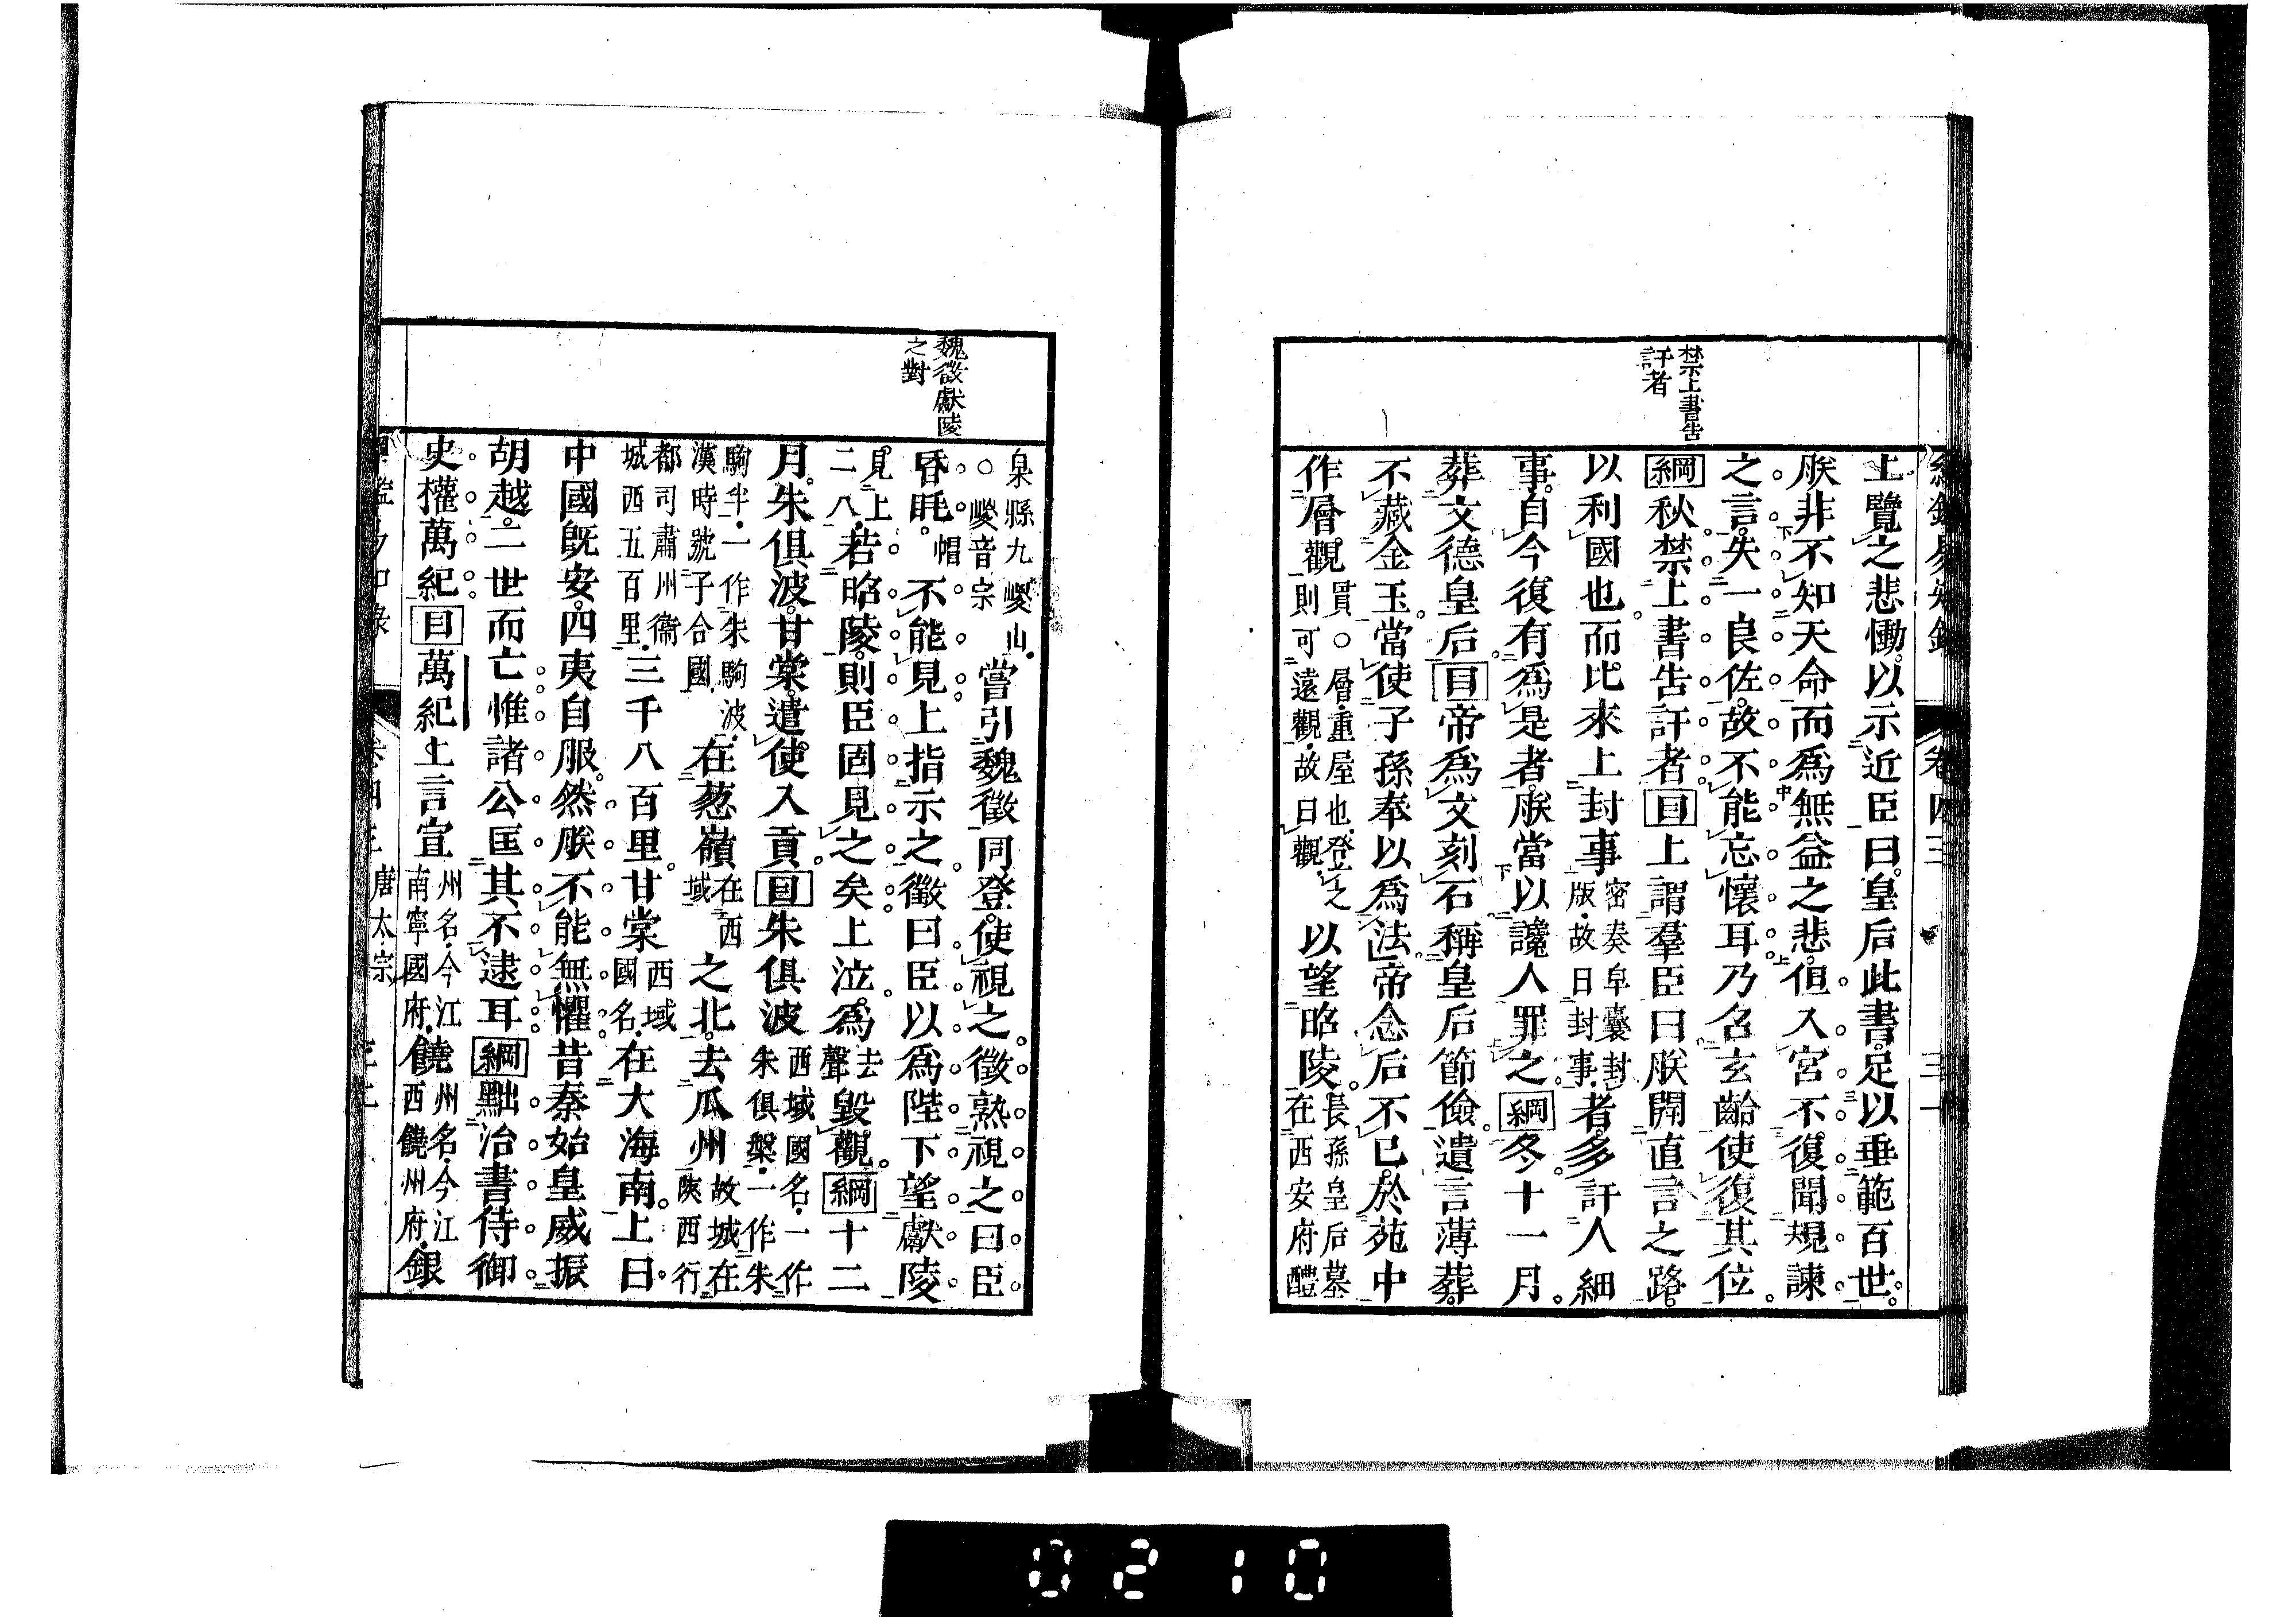 禁上書告
訐者
綱鑑易知錄 卷四三 三十
上覽之悲慟。以示近臣曰。皇后此書。足以垂範百世。
朕非不知天命而爲無益之悲。但入宮不復聞規諫
之言。失一良佐。故不能忘懷耳乃召玄齡使復其位。
綱秋禁上書告訐者。目上謂羣臣曰朕開直言之路。
以利國也。而比來上封事密奏皁囊封版故曰封事者。多訐人細
事。自今復有爲是者。朕當以讒人罪之。綱冬。十一月。
葬文德皇后。目帝爲文刻石稱皇后節儉。遺言薄葬。
不藏金玉。當使子孫奉以爲法。帝念后不已。於苑中
作層觀。貫○層重屋也登之則可遠觀故曰觀以望昭陵。長孫皇后墓在西安府醴
魏徵獻陵
之對
泉縣九嵕山○嵕音宗嘗引魏徵同登。使視之。徵熟視之曰臣
昏眊。帽不能見上指示之。徵曰臣以爲陛下望獻陵
見上二八若昭陵。則臣固見之矣。上泣。爲去聲毀觀。綱十二
月。朱俱波。甘棠。遣使入貢。目朱俱波西域國名一作朱俱槃一作朱
駒半一作朱駒波漢時號子合國在葱嶺在西域之北。去瓜州故城在陝西行
都司肅州衞城西五百里三千八百里。甘棠西域國名在大海南。上曰
中國旣安。四夷自服。然朕不能無懼。昔秦始皇威振
胡越。二世而亡惟諸公匡其不逮耳綱黜治書侍御
史權萬紀目萬紀上言宣州名今江南寧國府饒州名今江西饒州府銀
唐太宗